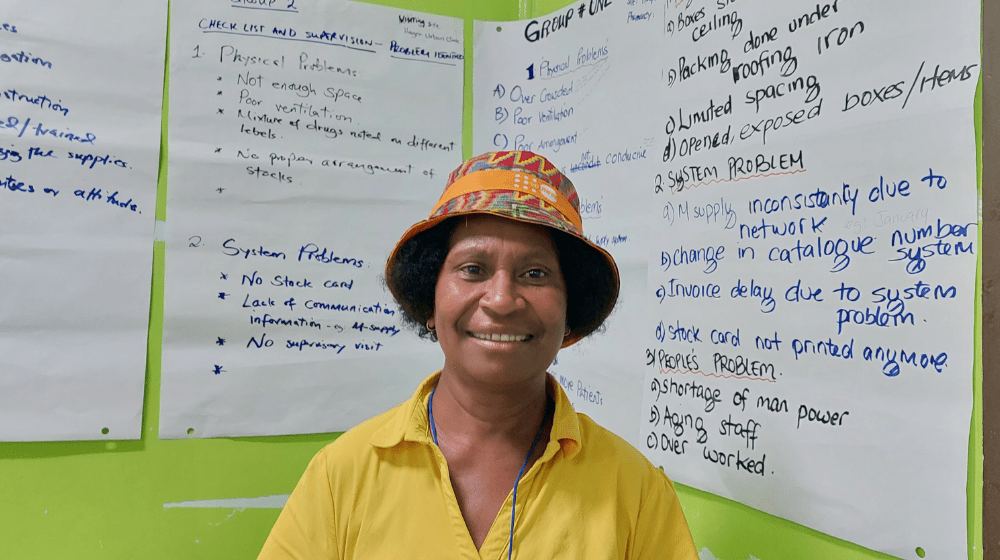 ostion
struction
ed/trained
ging the supplies.
GROUP 2
CHECK LIST AND SUPERVISION — PROBLEM
1. Physical Problems
* Not enough space
* Poor ventilation
* Mixture of drugs noted on different
labels.
* No proper arrangement of
stocks.
*
2. System Problems.
* No Stock card
* Lack of communication
Information - eg M-supply
* No supervisory visit
*
GROUP # ONE
1 Physical Problems
A) Over Crowded
B) Poor Ventilation
C) Poor Arrangement
conducive
more Patients
Pharmacy.
a) Boxes
ceiling
b) Packing done under
roofing iron
c) Limited spacing
d) Opened, exposed boxes/Items
2. SYSTEM PROBLEM
a) M supply inconsistanty due to
network
b) change in catalogue number
system
c) Invoice delay due to system
problem.
d) stock card not printed anymore.
3) PEOPLE'S PROBLEM.
a) shortage of man power
b) Aging staff
c) Over worked.